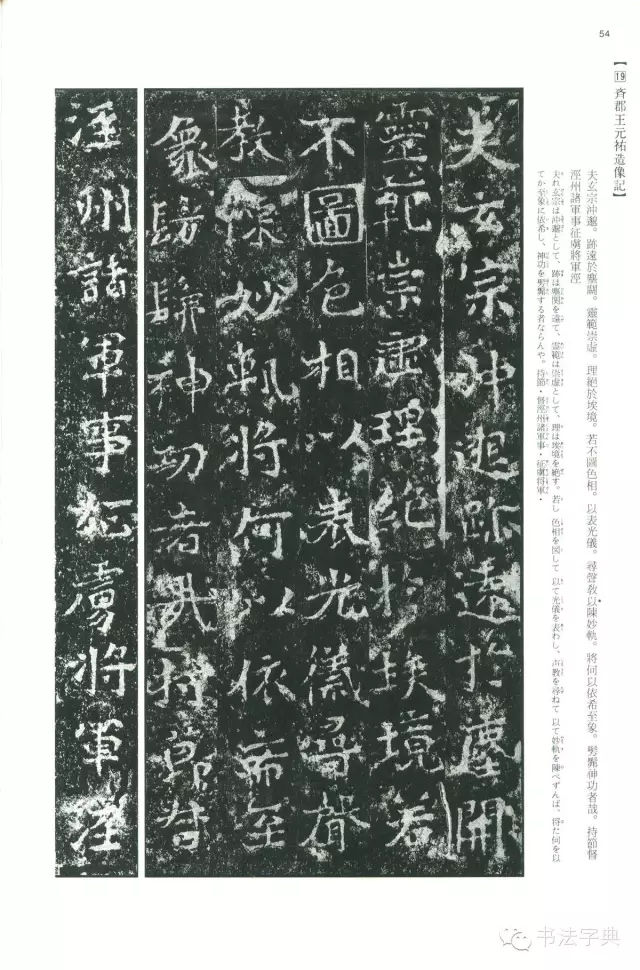 54
【19 斉郡王元祐造像記】
夫玄宗沖邈。跡遠於塵關。靈範崇虛。理絶於埃境。若不圖色相。以表光儀。尋聲教以陳妙軌。將何以依希至象。髣髴神功者哉。持節督
涇州諸軍事征虜將軍涇
夫れ玄宗は沖邈として、跡は塵関を遠て、霊範は崇虚として、理は埃境を絶す。若し 色相を図して 以て光儀を表わし、声教を尋ねて 以て妙軌を陳べずんば、得た何を以
てか至象に依希し、神功を髣髴する者ならんや。持節・督涇州諸軍事・征虜将軍・
夫玄宗沖邈跡遠於塵開
靈範崇虛理絶於埃境若
不圖色相以表光儀尋聲
教陳妙軌將何以依希至
象髣髴神功者哉持節督
涇州諸軍事征虜將軍涇
书法字典